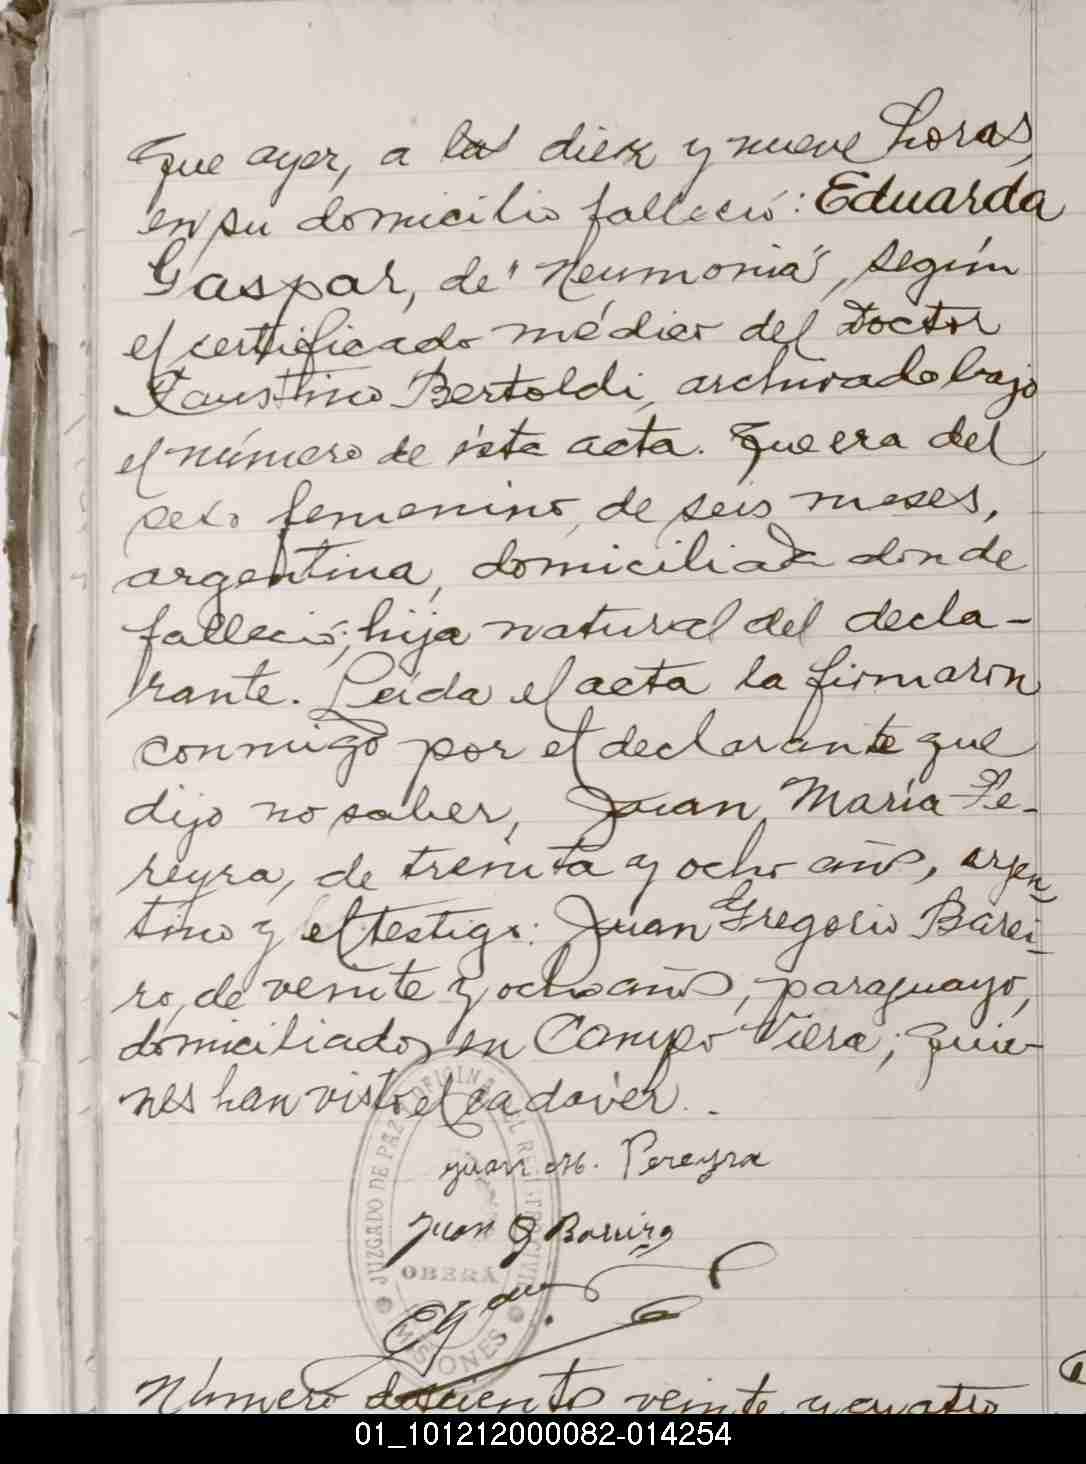 que ayer, a las diez y nueve horas,
en su domicilio falleció: Eduarda
Gaspar, de "Neumonia", según
el certificado médico del Doctor
Faustino Bertoldi, archivado bajo
el número de ésta acta. Que era del
sexo femenino, de seis meses,
argentina, domiciliada donde
falleció; hija natural del decla-
rante. Leída el acta la firmaron
conmigo por el declarante que
dijo no saber, Juan María Pe-
reyra, de treinta y ocho años, argen-
tino y el testigo: Juan Gregorio Barei-
ro, de veinte y ocho años, paraguayo,
domiciliados en Campo Viera; quie-
nes han visto el cadáver.
Juan M. Pereyra
Juan G Barreiro
JUZGADO DE PAZ OFICINA DEL REG. CIVIL
OBERÁ
MISIONES
Número doscientos veinte y cuatro
01_101212000082-014254